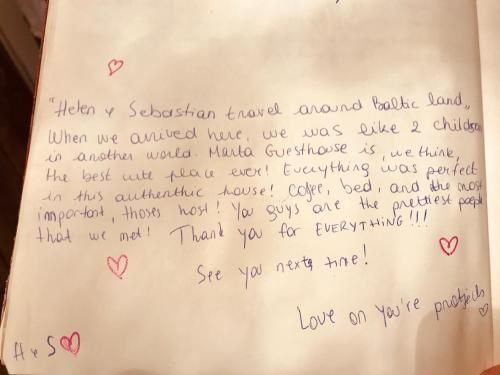 "Helen & Sebastian travel around Baltic land„
When we arrived here, we was like 2 children
in another world. Marta Guesthouse is, we think,
the best cute place ever! Everything was perfect
in this authenthic house! Cofee, bed, and the most
important, thoses host! You guys are the prettiest people
that we met! Thank you for EVERYTHING!!!
See you next time!
Love on you're protjects
H & S